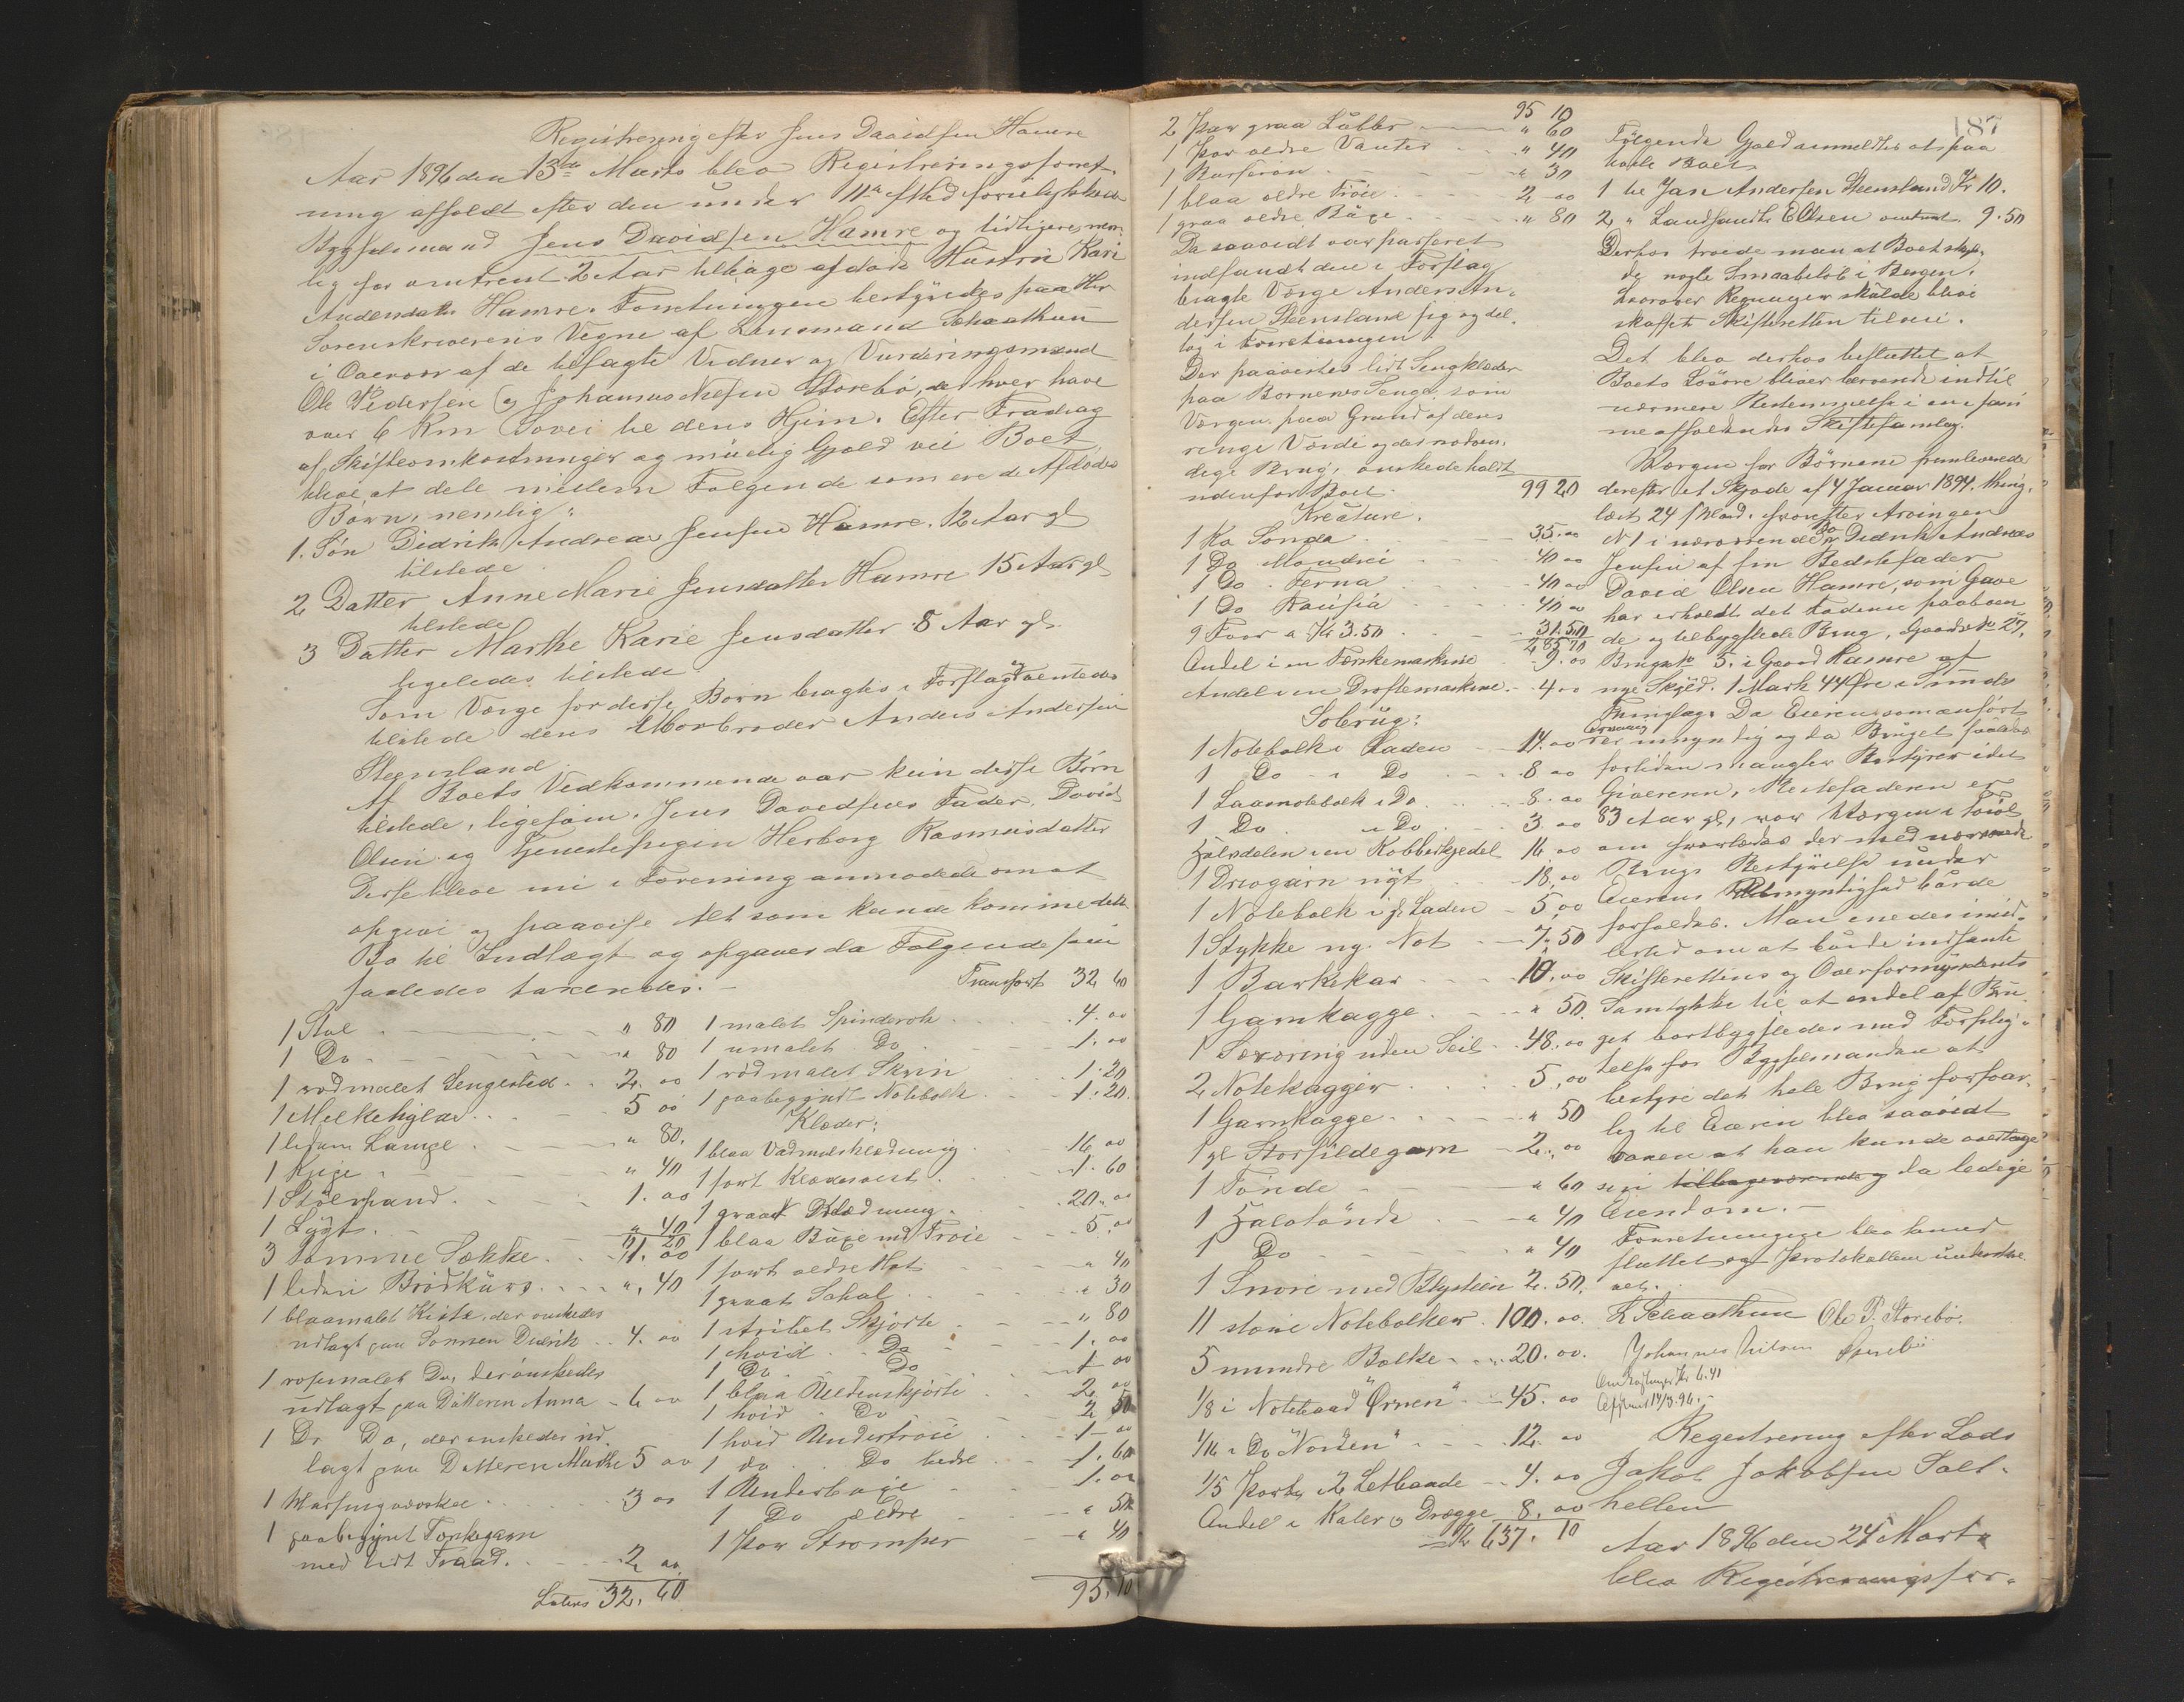 Registrering efter Jens Davidsen Hamre
Aar 1896 den 13de Marts blev Registreringsforret-
ning afholdt efter den under 11te efthd forulykkede
Bygselmand Jens Davidsen Hamre og tidligere nem-
lig for omtrent 2 Aar tilbage afdøde Hustrü Kari
Andersdatr Hamre. Forretningen bestyredes paa Hr
Sorenskriverens Vegne af Lensmand Schaathun
i Overvær af de tilsagte Vidner og Vurderingsmænd
Ole Pedersen og Johannes Nilsen Storebö, der hver have
over 6 Km Sövei til deres Hjem. Efter Fradrag
af Skifteomkostninger og müelig Gjæld vil Boet
blive at dele mellem Følgende som ere de Afdødes
Börn, nemlig:
1. Sön Didrik Andreas Jensen Hamre. 12 Aar gl
tilstede
2 Datter Anne Marie Jensdatter Hamre 15 Aar gl
tilstede
3 Datter Marthe Karie Jensdatter 8 Aar gl.
ligeledes tilstede
Som Værge for disse Börn bragtes i Forslag og ventedes
tilstede deres Morbroder Anders Andersen
Steensland.
Af Boets Vedkommende var kun disse Börn
tilstede, ligesom Jens Davidsens Fader, David
Olsen og Tjenestepigen Herborg Rasmusdatter
Disse bleve nu i Forening anmodede om at
opgive og paavise Alt som kunde komme dette
Bo til Indtægt og opgaves da Følgende som
saaledes taxeredes.
1 Stol " 80
1 Do " 80
1 rødmalet Sengested 2. 00
1 Melkehylde 5 00
1 liden Lampe " 80.
1 Kjige " 40
1 Stölspand 1. 00
1 Lygt " 40
11 20
3 tomme Sække 1. 00
1 liden Brödkürv " 40
1 blaamalet Kiste, der önskedes
udlagt paa Sønnen Didrik 4. 00
1 rosemalet Do, der önskedes
üdlagt paa Datteren Anna 6 00
1 Do Do, der önskedes üd
lagt paa Datteren Marthe 5 00
1 3 00
1 paabegynt Torskegarn
med lidt Traad. 2 00
Lateris 32. 60
Transport 32 60
1 malet Spinderok 4. 00
1 umalet Do 1. 00
1 rödmalet Skrin 1. 20
1 paabegyndt Notebolk 1. 20
Klæder:
1 blaa Vadmelsklædning 16 00
1 sort Klædesvest 1. 60
1 graat Klædning 20. 00
1 blaa Büxe med Tröie 5. 00
1 sort ældre Hat " 40
1 graat Schal " 30
1 stribet Skjorte " 80
1 hvid Do 1. 00
1 Do Do 1 00
1 blaa Uldenskjorte 2 00
1 hvid Do 2 50
1 hvid Undertröie 1 00
1 do Do bedre 1. 60
1 Underbuxe 1. 00
1 Do ældre " 50
1 Par Strømper " 40
95. 10
95 10
2 Par graa Labber " 60
1 Par ældre Vanter " 40
1 " 30
1 blaa ældre Tröie 2 00
1 graa ældre Büxe " 80
Da saavidt var passeret
indfandt den i Forslag
bragte Værge Anders An-
dersen Steensland sig og del
tog i Forretningen.
Der paavistes lidt Sengklæder
paa Børnenes Senge, som
Værgen paa Grund af deres
ringe Værdi og det nødven-
dige Brug, ønskede holdt
udenfor Boet.
99 20
Kreature.
1 Ko Sonda 35. 00
1 Do Mandrei 40 00
1 Do Terna 40 00
1 Do Raüsia 40 00
9 Foor a Kr 3.50 31. 50
285 70
Andel i en Tærskemaskine 9. 00
Andel i en Drøftemaskine 4 00
Sobrüg:
1 Notebolk i Laden 14. 00
1 Do i Do 8 00
1 Laasnotebolk i Do 8. 00
1 Do i Do 3 00
Halvdelen i en Kobberkjedel 16 00
1 Drivgarn nÿt 18, 00
1 Notebolk i gl Laden 5, 00
1 Stykke ny Not 7, 50
1 Barkekar 10, 00
1 Garnkagge " 50.
1 Sexæring uden Seil 48. 00
2 Notekagger 5, 00
1 Garnkagge " 50
1 gl Storsildegarn 2, 00
1 Tönde " 60
1 Halvtönde " 40
1 Do " 40
1 Snøre med Blysteen 2. 50.
11 störe Notebolker 100. 00.
5 mindre Bolke 20. 00.
1/8 i Notebaad "Ørnen" 45. 00
1/16 i Do "Norden" 12. 00
1/5 Part i 2 Letbaade 4. 00
Andel i Kaler og Drægge 8. 00
Kr 637. 10
187
Følgende Gjæld anmeldtes at paa
hvile Boet
1 til Jan Andersen Steensland Kr 10.
2 " Landhandl. E Olsen omtrent 9.50
3 Derhos troede man at Boet skyl-
de nogle Smaabeløb i Bergen.
hvorover Regninger skülde blive
skaffet Skifteretten tilveie.
Det blev derhos besluttet at
Boets Lösöre bliver beroende indtil
nærmere Bestemmelse i en i sam
me afholdendes Skiftesamling.
Værgen for Börnene fremleverede
derefter et Skjøde af 4 Januar 1894, thing-
læst 24 s Md. hvorefter Arvingen
N 1 i nærværende Bo Didrik Andreas
Jensen af sin Bedstefader
David Olsen Hamre, som Gave
har erholdt det Faderen paaboen
de og tilbygslede Brug, Gaards No 27,
Brugs No 5. i Gaard Hamre af
nye Skyld. 1 Mark 44 Øre i Sunds
Thinglag. Da Eieren som anført
Arving er umyndig og da Brüget saaledes
fortiden mangler Bestyrer idet
Giveren, Bestefaderen er
83 Aar gl, var Værgen i tvivl
om hvorledes der med nærværende
Brugs Bestyrelse under
Eierens Umyndighed bürde
forholdes. Man enedes imid-
lertid om at bürde indhente
Skifterettens og Overformynderiets
Samtykke til at endel af Brü
get bortbygsledes med Forplig-
telse for Bygselmanden at
bestyre det hele Brug forsvar-
lig til Eieren blev saavidt
voxen at han kunde overtage
sin tilbageværende da ledige
Eiendom.
Forretningen blev hermed
sluttet og Protokollen underskre
ven.
L Schaathun Ole P. Storebø.
Johannes Nilsen Storebö
Omkostninger Kr 6.40
14/3.96.
Registrering efter Lods
Jakob Jakobsen Salt-
hellen
Aar 1896 den 24 Marts
blev Registreringsfor-